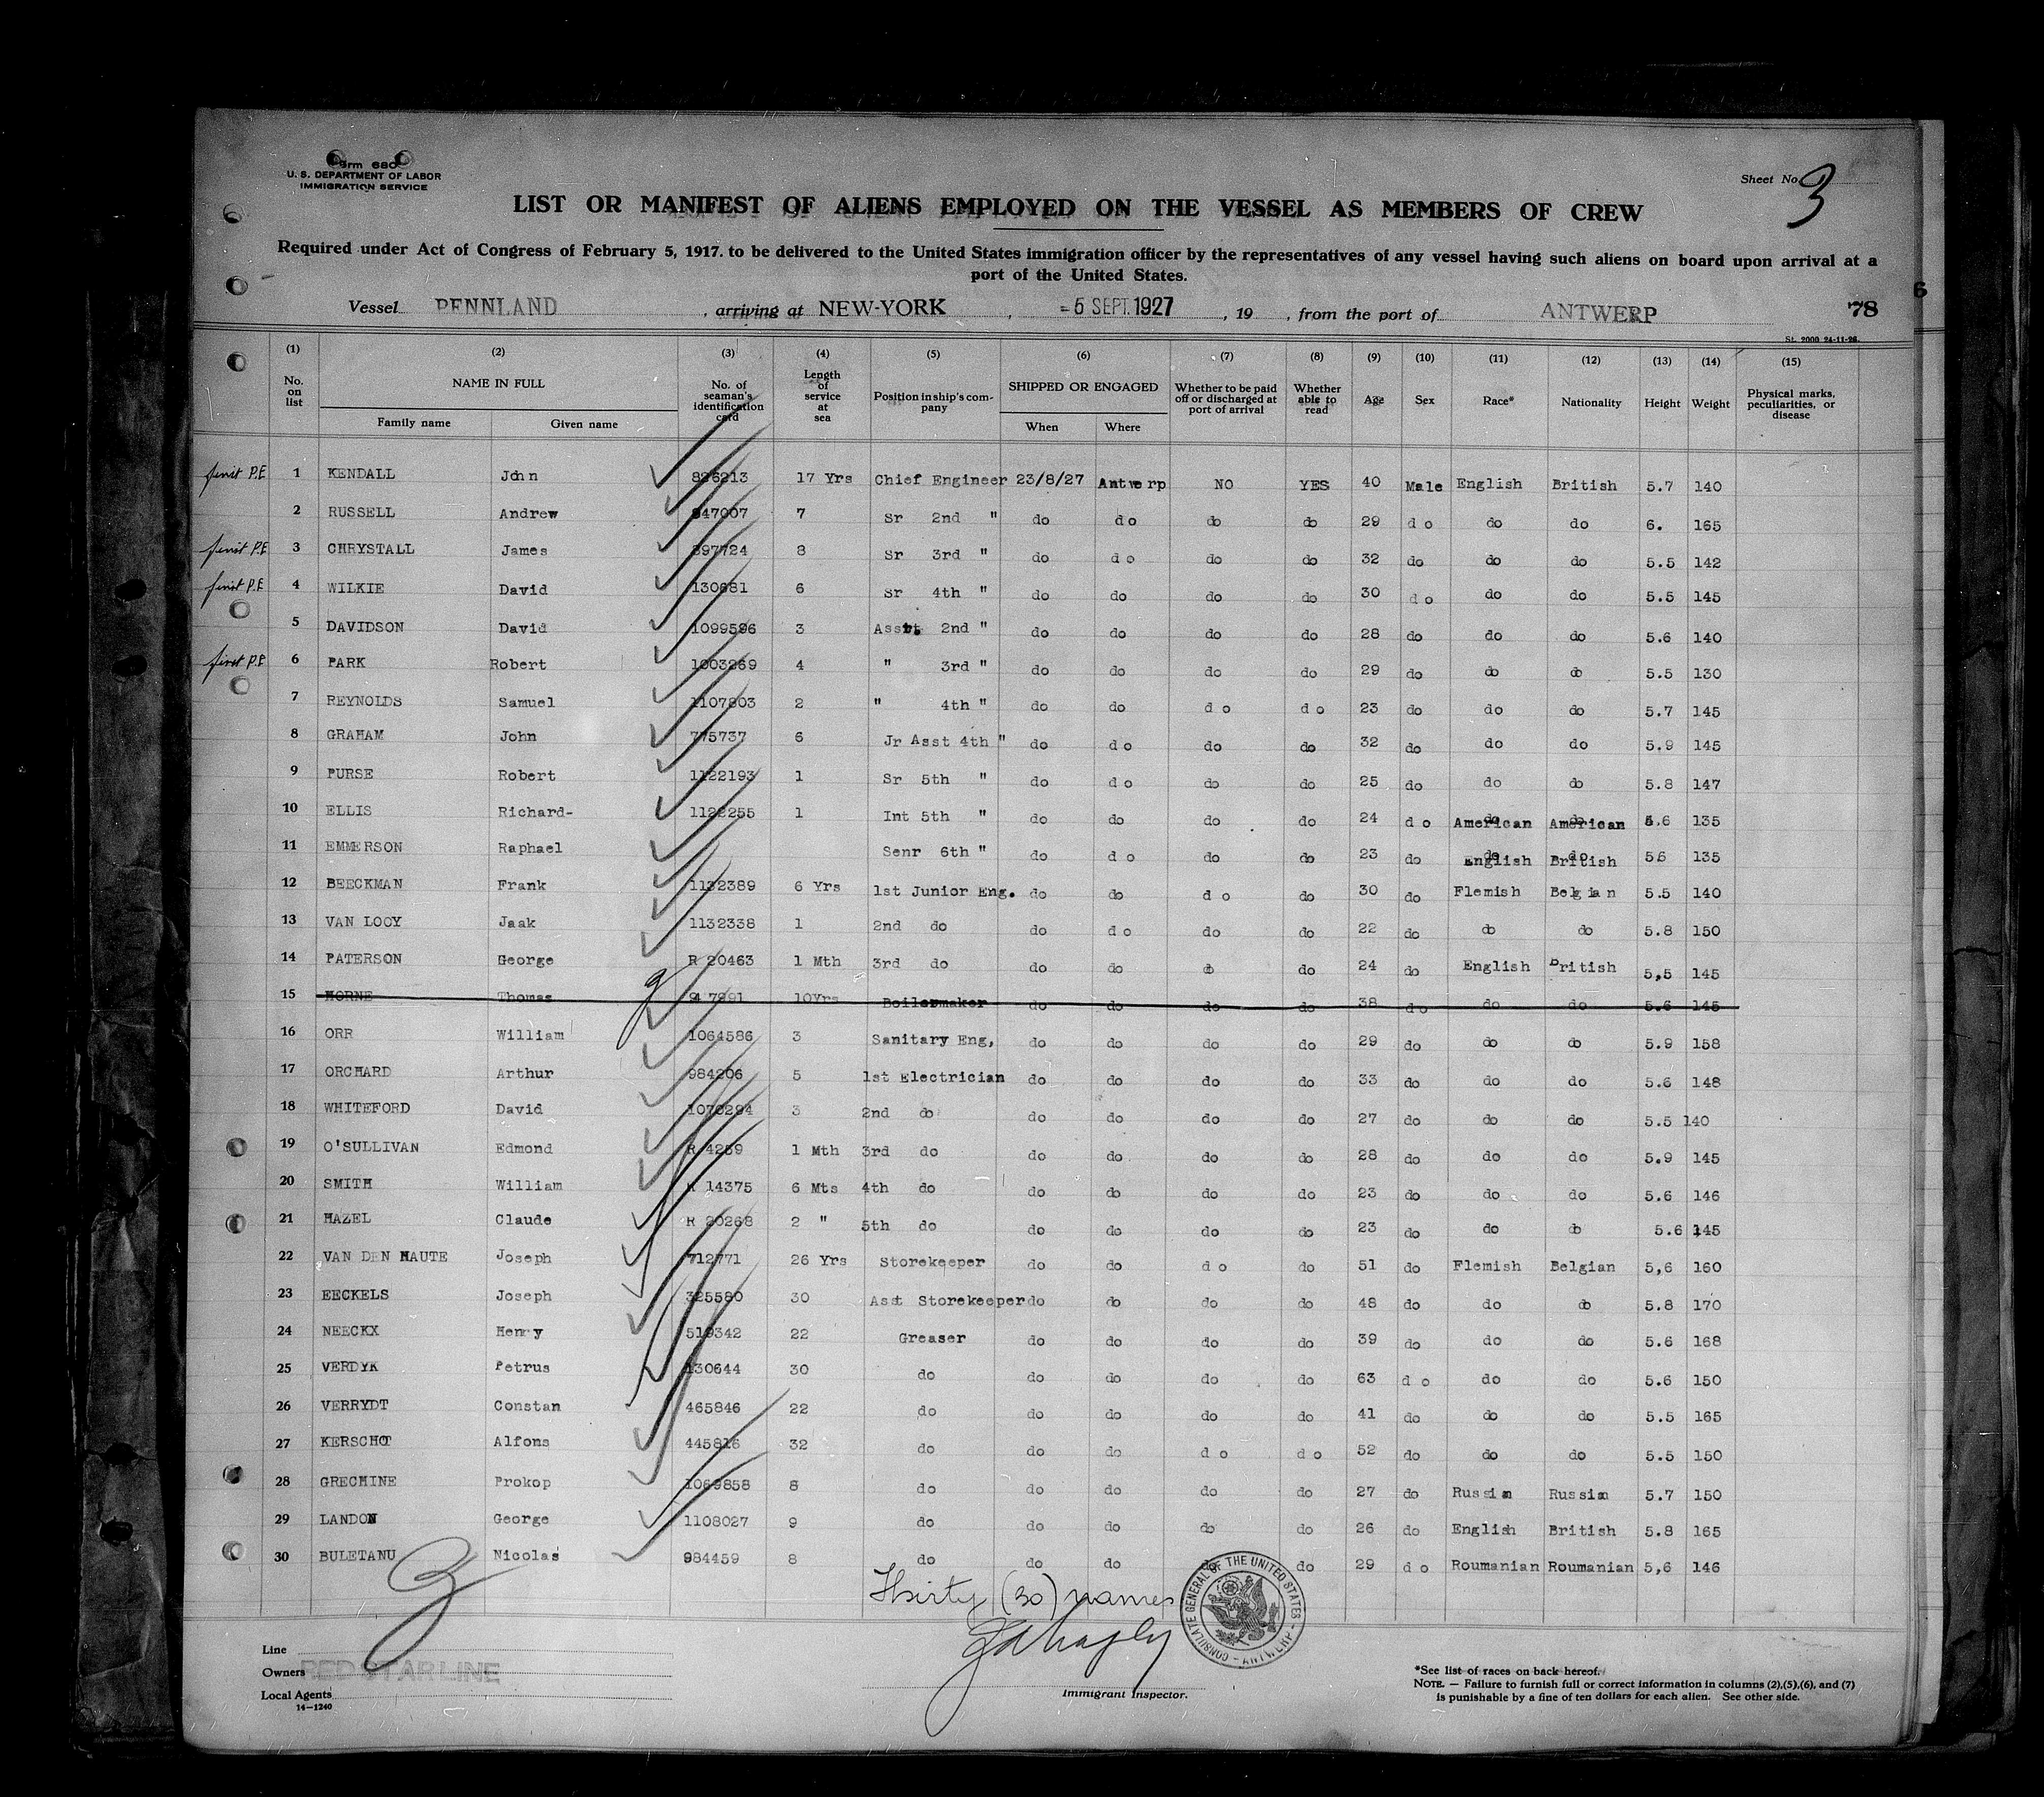 Form 680
U. S. DEPARTMENT OF LABOR
IMMIGRATION SERVICE
Sheet No. 3
LIST OR MANIFEST OF ALIENS EMPLOYED ON THE VESSEL AS MEMBERS OF CREW
Required under Act of Congress of February 5, 1917. to be delivered to the United States immigration officer by the representatives of any vessel having such aliens on board upon arrival at a
port of the United States.
Vessel PENNLAND , arriving at NEW-YORK , -5 SEPT. 1927 , 19 , from the port of ANTWERP 78
6
St. 2000 24-11-26.
(1) (2) (3) (4) (5) (6) (7) (8) (9) (10) (11) (12) (13) (14) (15)
No. on list NAME IN FULL Family name Given name No. of seaman's identification card Length of service at sea Position in ship's company SHIPPED OR ENGAGED When Where Whether to be paid off or discharged at port of arrival Whether able to read Age Sex Race* Nationality Height Weight Physical marks, peculiarities, or disease
first P.E 1 KENDALL John 826213 17 Yrs Chief Engineer 23/8/27 Antwerp NO YES 40 Male English British 5.7 140
2 RUSSELL Andrew 847007 7 Sr 2nd " do do do do 29 do do do 6. 165
first P.E 3 CHRYSTALL James 897724 8 Sr 3rd " do do do do 32 do do do 5.5 142
first P.E 4 WILKIE David 130681 6 Sr 4th " do do do do 30 do do do 5.5 145
5 DAVIDSON David 1099596 3 Asst 2nd " do do do do 28 do do do 5.6 140
first P.E 6 PARK Robert 1003269 4 " 3rd " do do do do 29 do do do 5.5 130
7 REYNOLDS Samuel 1107803 2 " 4th " do do do do 23 do do do 5.7 145
8 GRAHAM John 775737 6 Jr Asst 4th " do do do do 32 do do do 5.9 145
9 PURSE Robert 1122193 1 Sr 5th " do do do do 25 do do do 5.8 147
10 ELLIS Richard- 1122255 1 Int 5th " do do do do 24 do American American 5.6 135
11 EMMERSON Raphael Senr 6th " do do do do 23 do English British 56 135
12 BEECKMAN Frank 1132389 6 Yrs 1st Junior Eng. do do do do 30 do Flemish Belgian 5.5 140
13 VAN LOOY Jaak 1132338 1 2nd do do do do do 22 do do do 5.8 150
14 PATERSON George R 20463 1 Mth 3rd do do do do do 24 do English British 5,5 145
15 HORNE Thomas 947991 10Yrs Boilermaker do do do do 38 do do do 5.6 145
16 ORR William 1064586 3 Sanitary Eng, do do do do 29 do do do 5.9 158
17 ORCHARD Arthur 984206 5 1st Electrician do do do do 33 do do do 5.6 148
18 WHITEFORD David 1070294 3 2nd do do do do do 27 do do do 5.5 140
19 O'SULLIVAN Edmond R 4289 1 Mth 3rd do do do do do 28 do do do 5.9 145
20 SMITH William R 14375 6 Mts 4th do do do do do 23 do do do 5.6 146
21 HAZEL Claude R 20268 2 " 5th do do do do do 23 do do do 5.6 145
22 VAN DEN HAUTE Joseph 712771 26 Yrs Storekeeper do do do do 51 do Flemish Belgian 5,6 160
23 EECKELS Joseph 325580 30 Asst Storekeeper do do do do 48 do do do 5.8 170
24 NEECKX Henry 519342 22 Greaser do do do do 39 do do do 5.6 168
25 VERDYK Petrus 130644 30 do do do do do 63 do do do 5.6 150
26 VERRYDT Constan 465846 22 do do do do do 41 do do do 5.5 165
27 KERSCHOT Alfons 445816 32 do do do do do 52 do do do 5.5 150
28 GRECHINE Prokop 1069858 8 do do do do do 27 do Russian Russian 5.7 150
29 LANDON George 1108027 9 do do do do do 26 do English British 5.8 165
30 BULETANU Nicolas 984459 8 do do do do do 29 do Roumanian Roumanian 5,6 146
Thirty (30) names
CONSULATE GENERAL OF THE UNITED STATES - ANTWERP -
Line
Owners RED STAR LINE
Local Agents
14—1240
Immigrant Inspector.
*See list of races on back hereof.
NOTE. — Failure to furnish full or correct information in columns (2),(5),(6), and (7)
is punishable by a fine of ten dollars for each alien. See other side.